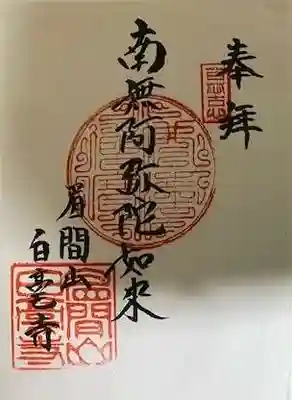 奉拝
南無阿弥陀如来
眉間山
白毫寺